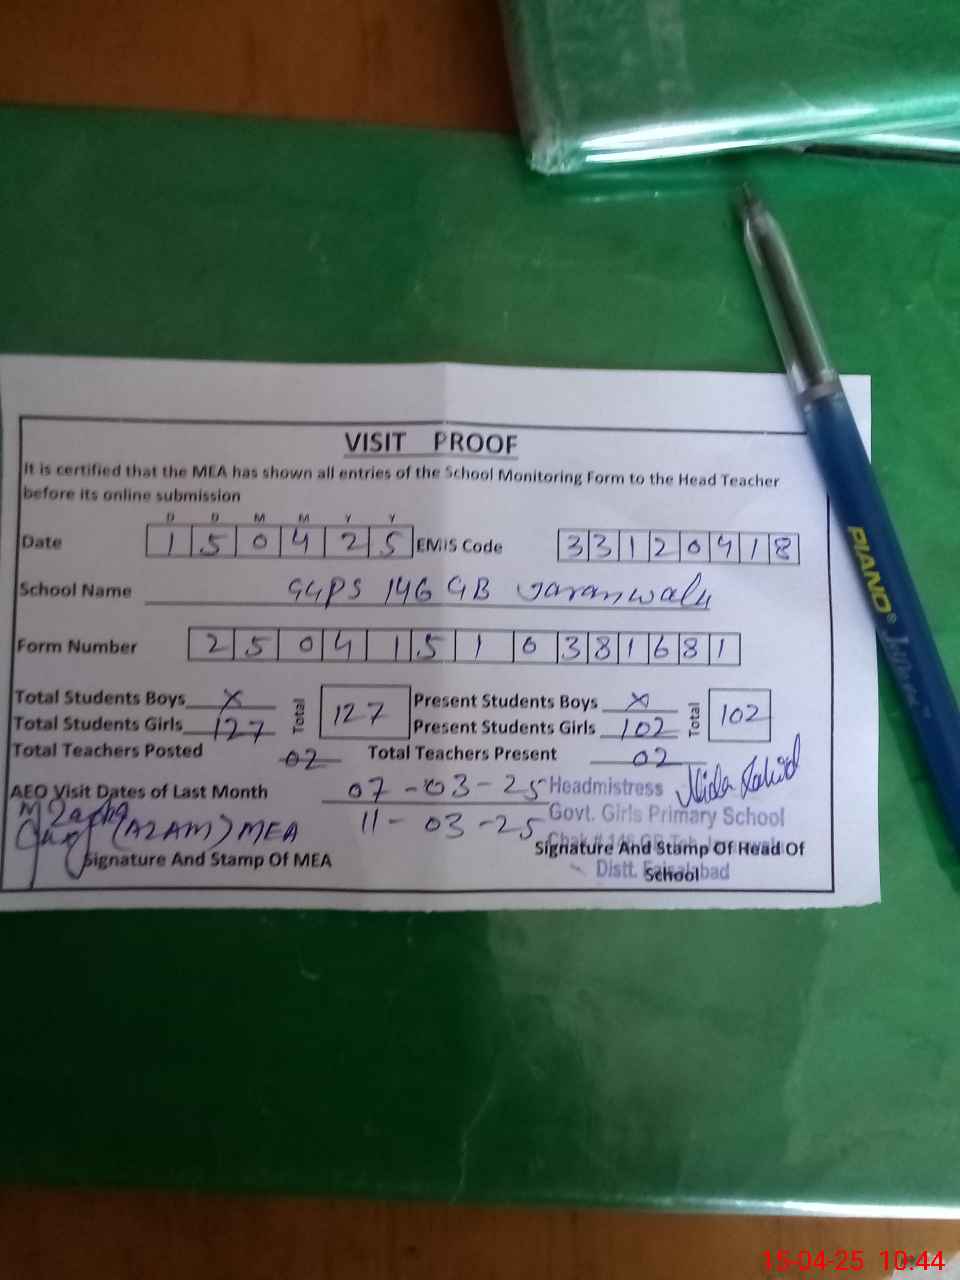 VISIT PROOF
It is certified that the MEA has shown all entries of the School Monitoring Form to the Head Teacher
before its online submission
D D M M Y Y
Date 1 5 0 4 2 5 EMIS Code 3 3 1 2 0 4 1 8
School Name GGPS 146 GB Jaranwala
Form Number 2 5 0 4 1 5 1 0 3 8 1 6 8 1
Total Students Boys x Total 127 Present Students Boys x Total 102
Total Students Girls 127 Present Students Girls 102
Total Teachers Posted 02 Total Teachers Present 02
AEO Visit Dates of Last Month 07-03-25 Headmistress
(AZAM) MEA 11-03-25 Govt. Girls Primary School
Signature And Stamp Of MEA Signature And Stamp Of Head Of
School
Distt. Faisalabad
PIANO
15-04-25 10:44